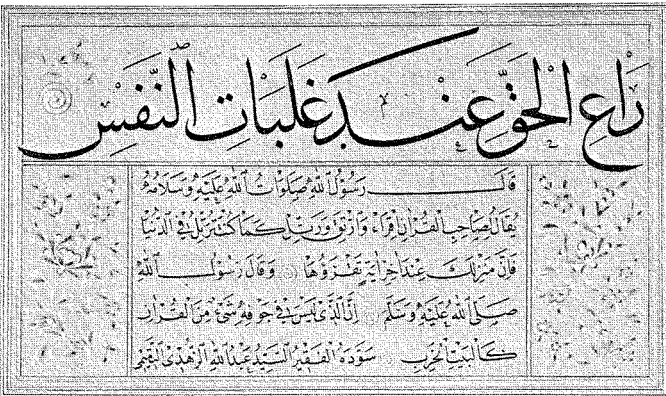 رَاعِ الْحَقَّ عِنْدَ غَلَبَاتِ النَّفْسِ
قَالَ رَسُوْلُ اللهِ صَلَوَاتُ اللهِ عَلَيْهِ وَسَلَامُهُ
يُقَالُ لِصَاحِبِ الْقُرْاٰنِ اِقْرَاءْ وَارْتَقِ وَرَتِّلْ كَمَا كُنْتَ تُرَتِّلُ فِي الدُّنْيَا
فَاِنَّ مَنْزِلَكَ عِنْدَ اٰخِرِ اٰيَةٍ تَقْرَؤُهَا وَقَالَ رَسُوْلُ اللهِ
صَلَّى اللهُ عَلَيْهِ وَسَلَّمَ اِنَّ الَّذِيْ لَيْسَ فِيْ جَوْفِهِ شَيْءٌ مِنَ الْقُرْاٰنِ
كَالْبَيْتِ الْخَرِبِ سَوَّدَهُ الْفَقِيْرُ السَّيِّدُ عَبْدُ اللهِ الزُّهْدِيُّ